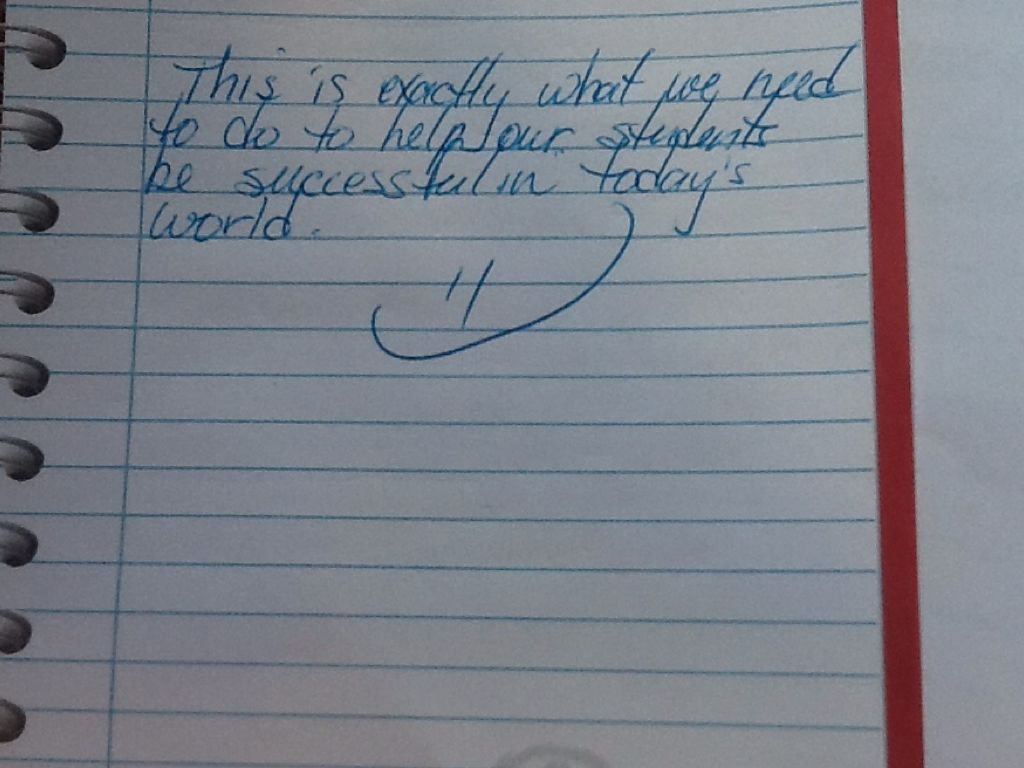 This is exactly what we need
to do to help our students
be successful in today's
world.